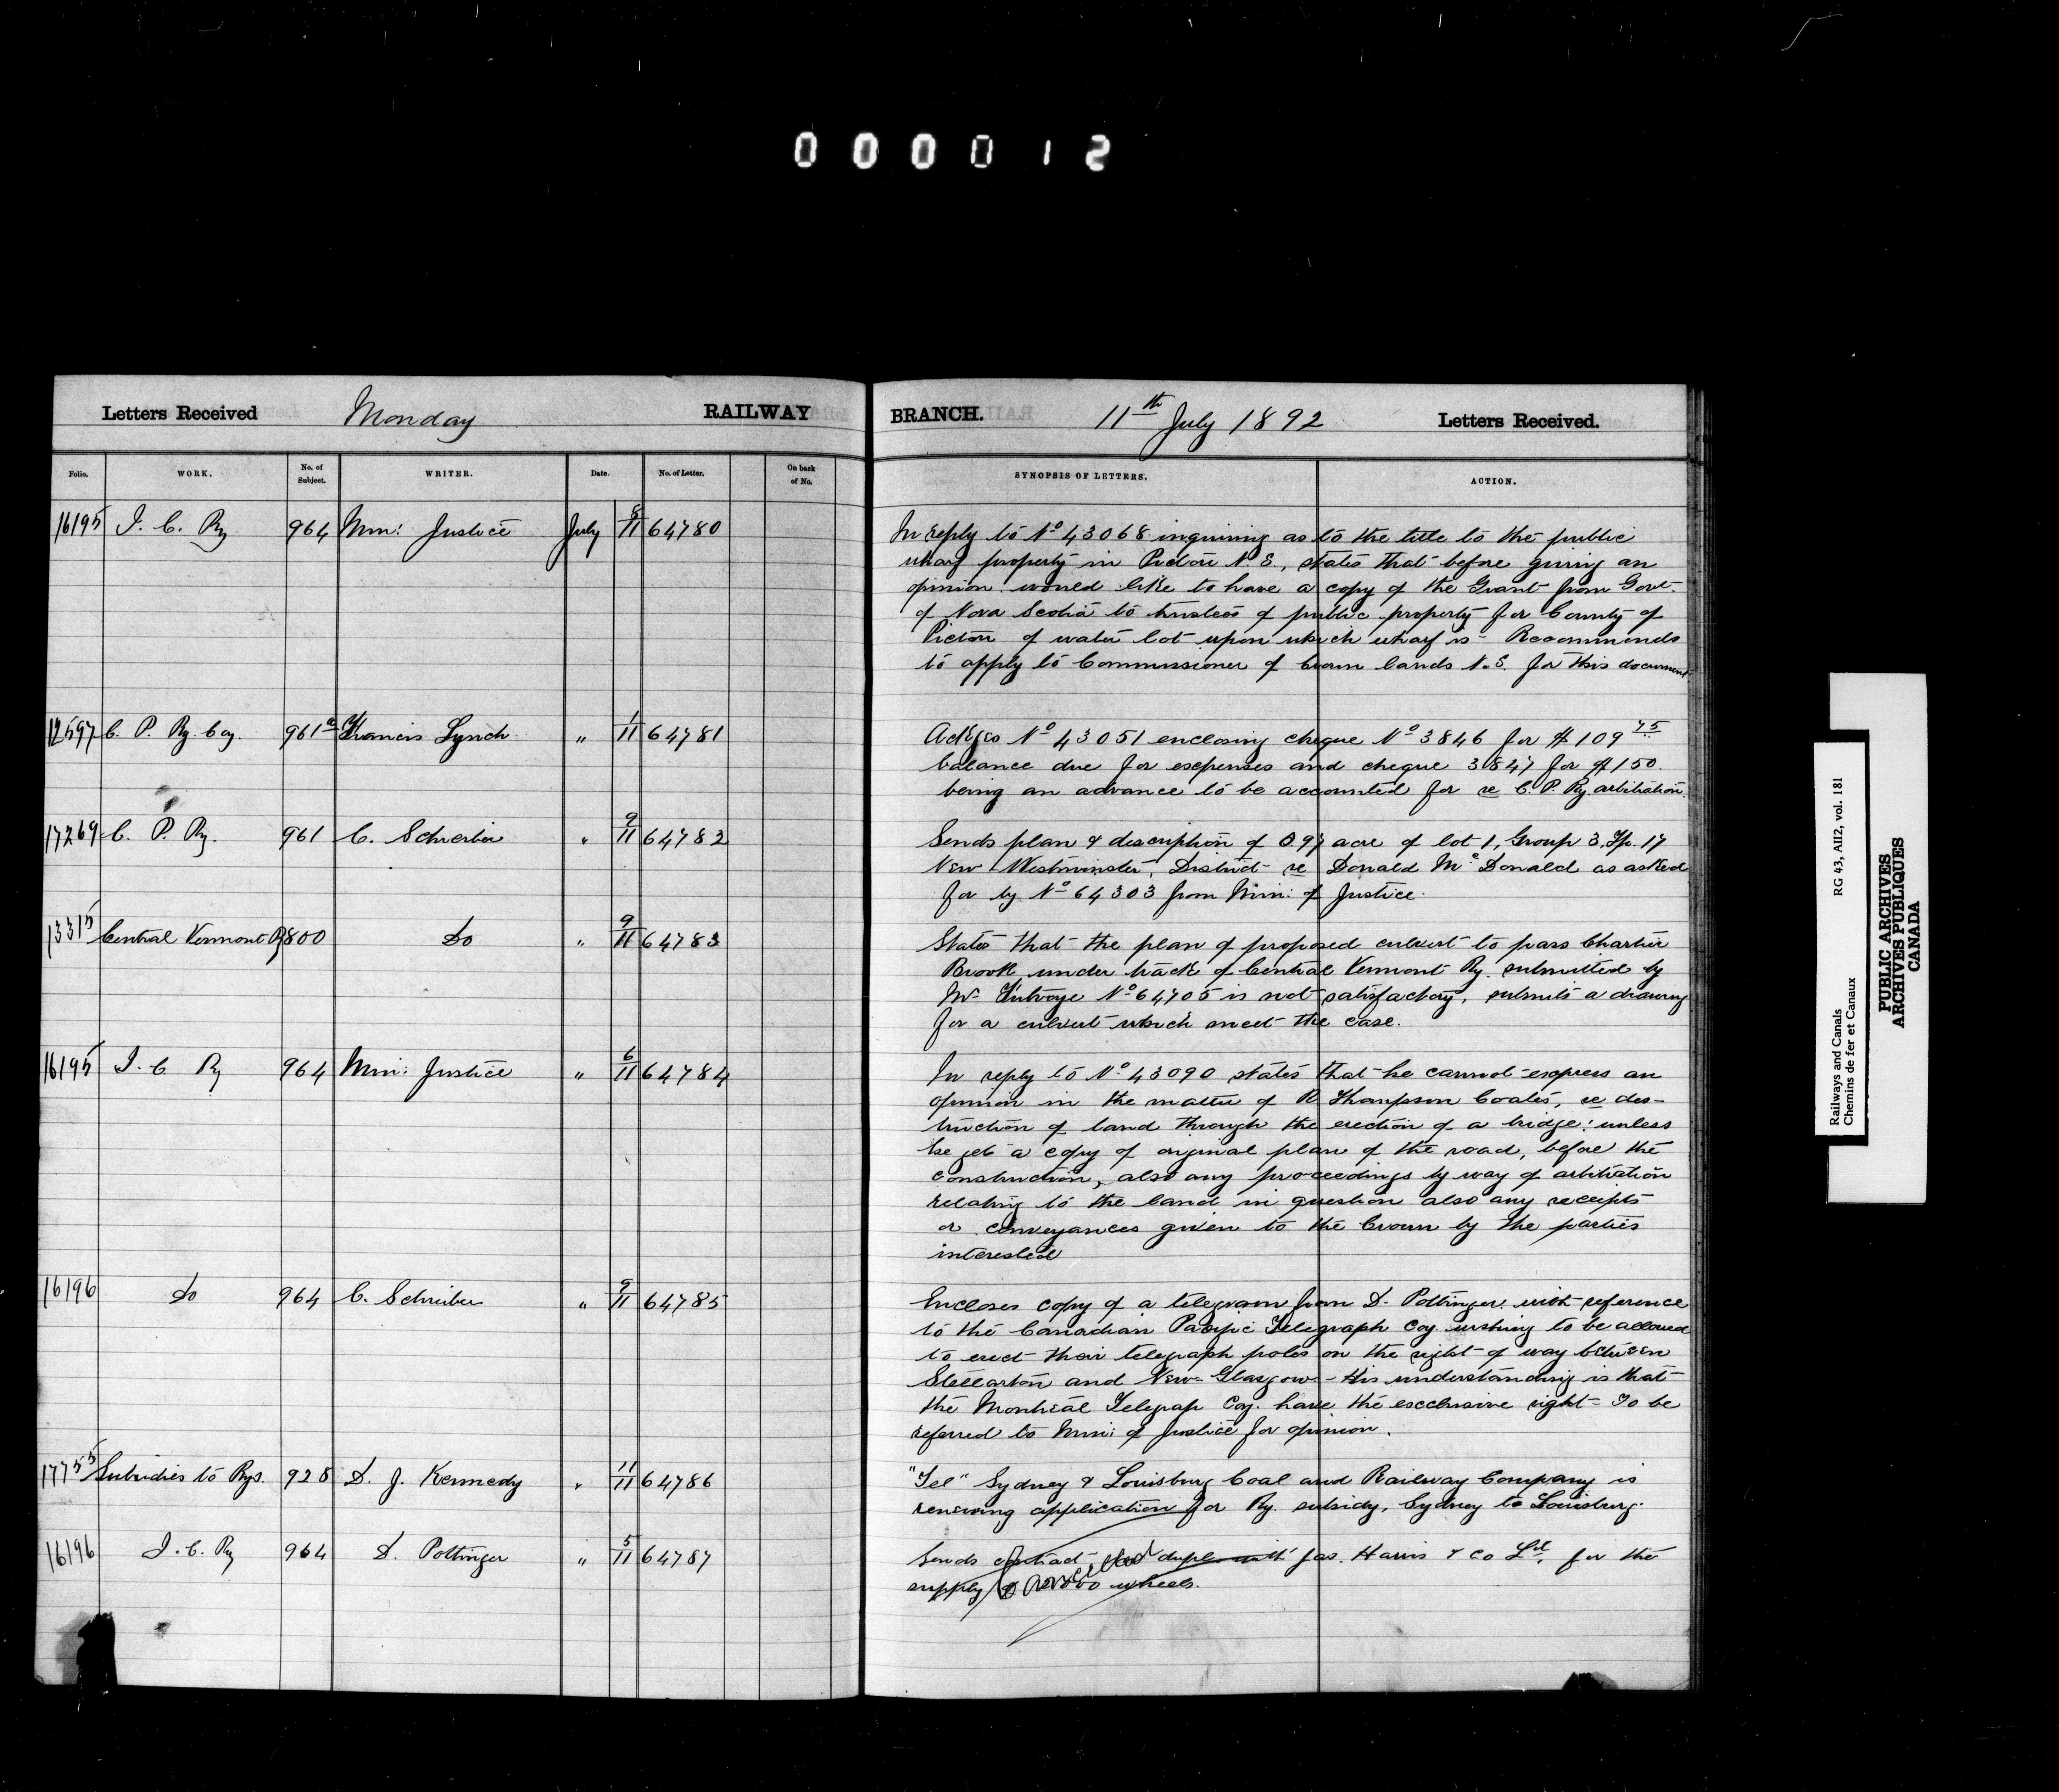 000012
Letters Received Monday RAILWAY BRANCH. 11th July 1892 Letters Received.
Folio. WORK. No. of Subject. WRITER. Date. No. of Letter. On back of No. SYNOPSIS OF LETTERS. ACTION.
16195 I. C. Ry 964 Min: Justice July 8/11 64780 In reply to No 43068 inquiring as to the title to the public
wharf property in Pictou N.S., states that before giving an
opinion would like to have a copy of the Grant from Govt.
of Nova Scotia to trustees of public property for County of
Pictou of water lot upon which wharf is - Recommends
to apply to Commissioner of Crown lands N.S. for this document
12597 C. P. Ry. Coy. 961a Francis Lynch " 1/11 64781 Ackges No 43051 enclosing cheque No 3846 for $109 75
balance due for expenses and cheque 3847 for $150.
being an advance to be accounted for re C. P. Ry. arbitration.
17269 C. P. Ry. 961 C. Schreiber " 9/11 64782 Sends plan & description of 0.97 acre of lot 1, Group 3, Tp. 17
New Westminster, District re Donald McDonald as asked
for by No 64303 from Min: of Justice.
13315 Central Vermont Ry 800 Do " 9/11 64783 States that the plan of proposed culvert to pass Chartier
Brook under track of Central Vermont Ry. submitted by
Mr. No 64705 is not satisfactory, submits a drawing
for a culvert which meet the case.
16195 I. C. Ry 964 Min: Justice " 6/11 64784 In reply to No 43090 states that he cannot express an
opinion in the matter of R Thompson Coates, re des-
truction of land through the erection of a bridge: unless
he gets a copy of original plan of the road, before the
construction, also any proceedings by way of arbitration
relating to the land in question also any receipts
or conveyances given to the Crown by the parties
interested
16196 Do 964 C. Schreiber " 9/11 64785 Encloses copy of a telegram from D. Pottinger with reference
to the Canadian Pacific Telegraph Coy. wishing to be allowed
to erect their telegraph poles on the right of way between
Stellarton and New Glasgow - His understanding is that
the Montreal Telegrap Coy. have the exclusive right - To be
referred to Min: of Justice for opinion.
17755 Subsidies to Rys. 928 D. J. Kennedy " 11/11 64786 "Tel" Sydney & Louisburg Coal and Railway Company is
renewing application for Ry. subsidy, Sydney to Louisburg.
16196 I. C. Ry 964 D. Pottinger " 5/11 64787 Sends contract dupl. with Jas. Harris & Co Ld. for the
supply of wheels.
Cancelled
Railways and Canals RG 43, AII2, vol. 181
Chemins de fer et Canaux
PUBLIC ARCHIVES
ARCHIVES PUBLIQUES
CANADA